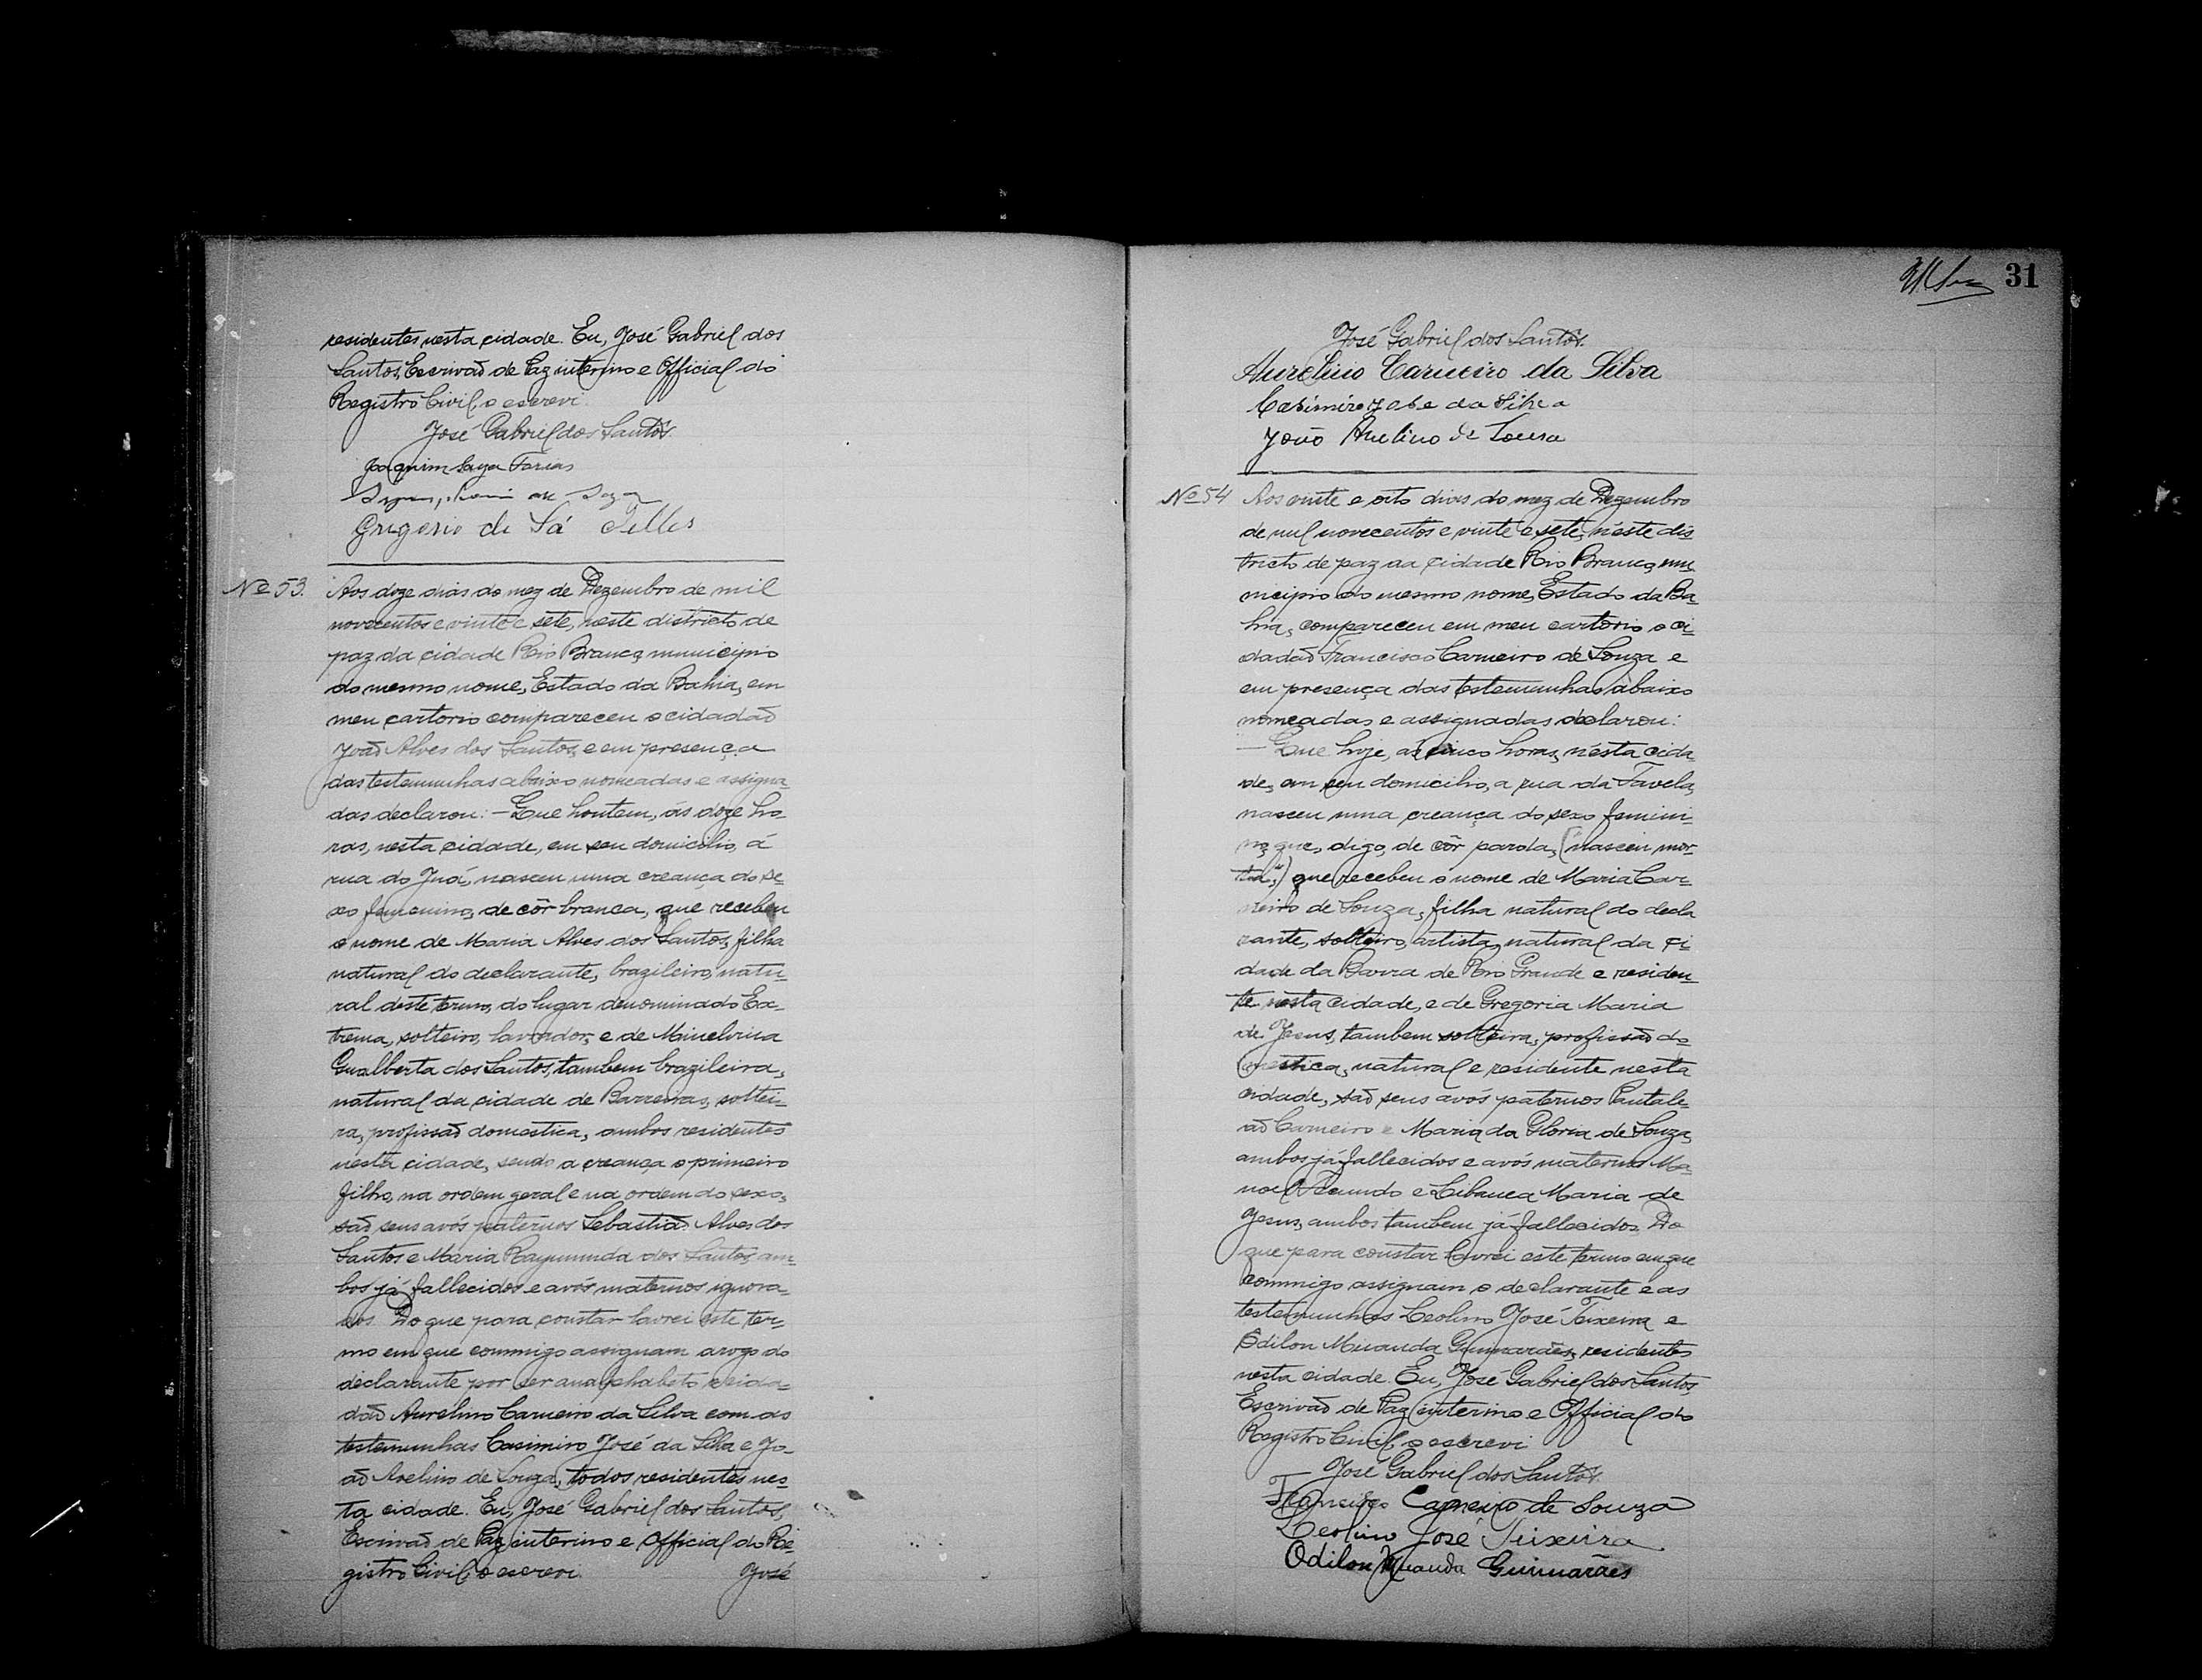 residentes nesta cidade. Eu, José Gabriel dos
Santos, Escrivaõ de Paz interino e Official do
Registro Civil, o escrevi.
José Gabriel dos Santos.
Joaquim Farias
Gregorio de Sá Telles
Nº 53. Aos doze dias do mez de Dezembro de mil
novecentos e vinte e sete, neste districto de
paz da cidade Rio Branco, municipio
do mesmo nome, Estado da Bahia, em
meu cartorio compareceu o cidadaõ
Joaõ Alves dos Santos, e em presença
das testemunhas abaixo nomeadas e assigna-
das declarou: - Que hontem, ás doze ho-
ras, nesta cidade, em seu domicilio, á
rua do Juá, nasceu uma creança do se-
xo femenino, de côr branca, que recebeu
o nome de Maria Alves dos Santos, filha
natural do declarante, brazileiro, natu-
ral deste termo, do lugar denominado Ex-
trema, solteiro, lavrador, e de Minelvina
Gualberta dos Santos, tambem brazileira,
natural da cidade de Barreiras, soltei-
ra, profissaõ domestica, ambos residentes
nesta cidade, sendo a creança o primeiro
filho, na ordem geral e na ordem do sexo,
saõ seus avós paternos Sebastiaõ Alves dos
Santos e Maria Raymunda dos Santos, am-
bos já fallecidos e avós maternos ignora-
dos. Do que para constar lavrei este ter-
mo em que commigo assignam a rogo do
declarante por ser analphabeto o cida-
daõ Aurelino Carneiro da Silva com as
testemunhas Casimiro José da Silva e Jo-
aõ Avelino de Souza, todos residentes nes-
ta cidade. Eu, José Gabriel dos Santos,
Escrivaõ de Paz interino e Official do Re-
gistro Civil, o escrevi. José
31
José Gabriel dos Santos.
Aurelino Carneiro da Silva
Casimiro Jose da Silva
João Avelino de Souza
Nº 54 Aos vinte e oito dias do mez de Dezembro
de mil novecentos e vinte e sete, n'este dis-
tricto de paz da cidade Rio Branco, mu-
nicipio do mesmo nome, Estado da Ba-
hia, compareceu em meu cartorio o ci-
dadaõ Francisco Carneiro de Souza e
em presença das testemunhas abaixo
nomeadas e assignadas declarou:
- Que hoje, ás cinco horas, n'esta cida-
de, em seu domicilio, a rua da Favela,
nasceu uma creança do sexo femini-
no, que, digo, de côr parda, (nasceu mor-
ta,) que recebeu o nome de Maria Car-
neiro de Souza, filha natural do decla
rante, solteiro, artista, natural da ci-
dade da Barra do Rio Grande e residen-
te nesta cidade, e de Gregoria Maria
de Jesus, tambem solteira, profissaõ do-
mestica, natural e residente nesta
cidade, saõ seus avós paternos Pantale-
aõ Carneiro e Maria da Gloria de Souza,
ambos já fallecidos e avós maternos Ma-
noel e Libanea Maria de
Jesus, ambos tambem já fallecidos. Do
que para constar lavrei este termo em que
commigo assignam o declarante e as
testemunhas Leolino José Teixeira e
Odilon Miranda Guimarães, residentes
nesta cidade. Eu, José Gabriel dos Santos,
Escrivaõ de Paz interino e Official do
Registro Civil, o escrevi.
José Gabriel dos Santos.
Francisco Carneiro de Souza
Leolino José Teixeira
Odilon Miranda Guimarães